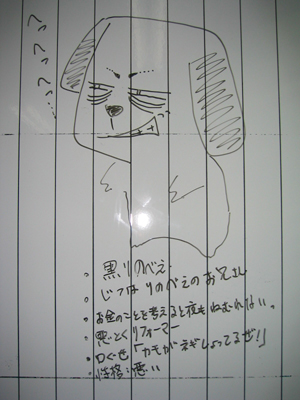 フッフッフッ…
・黒りのべえ
・じつはりのべえのお兄さん
・お金のことを考えると夜もねむれない。
・悪とくリフォーマー
・口ぐせ「カモがネギしょってるぜ!」
・性格:悪い